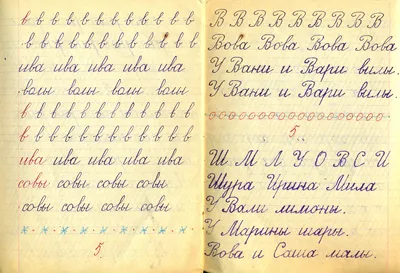 в в в в в в в в в в в в
в в в в в в в в в в в в
ива ива ива ива ива
волы волы волы волы
в в в в в в в в в в в в
в в в в в в в в в в в в
ива ива ива ива ива
совы совы совы совы
совы совы совы совы
5.
В В В В В В В В В
Вова Вова Вова Вова
У Вани и Вари вилы.
У Вани и Вари вилы.
5.
Ш М Л У О В С И
Шура Ирина Мила
У Вали лимоны.
У Марины шары.
Вова и Саша малы.